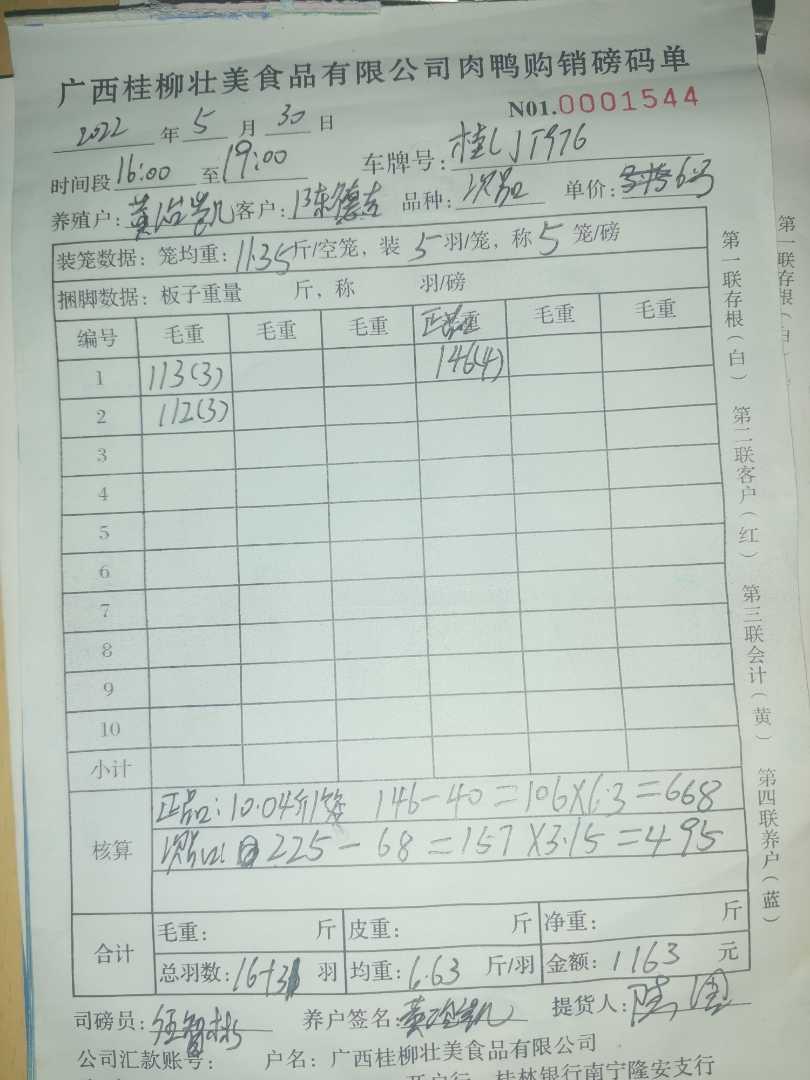 广西桂柳壮美食品有限公司肉鸭购销磅码单
N01.0001544
2022年5月30日
时间段16:00至19:00 车牌号:桂LJT976
养殖户:黄治凯 客户:陈德吉 品种:次品 单价:6号
装笼数据:笼均重:11.35斤/空笼,装5羽/笼,称5笼/磅
捆脚数据:板子重量 斤,称 羽/磅
编号 毛重 毛重 毛重 正品 毛重 毛重
1 113(3) 146(4)
2 112(3)
3
4
5
6
7
8
9
10
小计
核算
正品:10.04斤/笼 146-40=106×6.3=668
次品 225-68=157×3.15=495
合计
毛重: 斤 皮重: 斤 净重: 斤
总羽数:16+31羽 均重:6.63斤/羽 金额:1163元
司磅员: 养户签名:黄治凯 提货人:
公司汇款账号: 户名:广西桂柳壮美食品有限公司
开户行 桂林银行南宁隆安支行
第一联存根(白) 第二联客户(红) 第三联会计(黄) 第四联养户(蓝)
第一联存根(白)